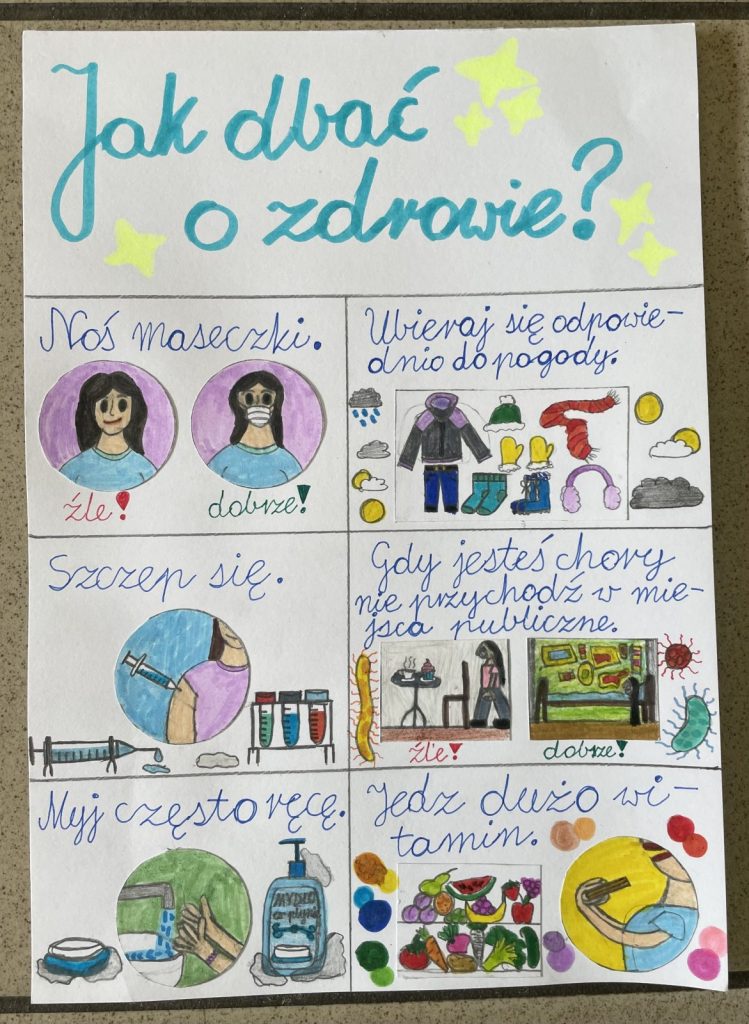 Jak dbać
o zdrowie?
Noś maseczki.
źle!
dobrze!
Ubieraj się odpowie-
dnio do pogody.
Szczep się.
Gdy jesteś chory
nie przychodź w mie-
jsca publiczne.
źle!
dobrze!
Myj często ręcę.
MYDŁO
w płynie
Jedz dużo wi-
tamin.